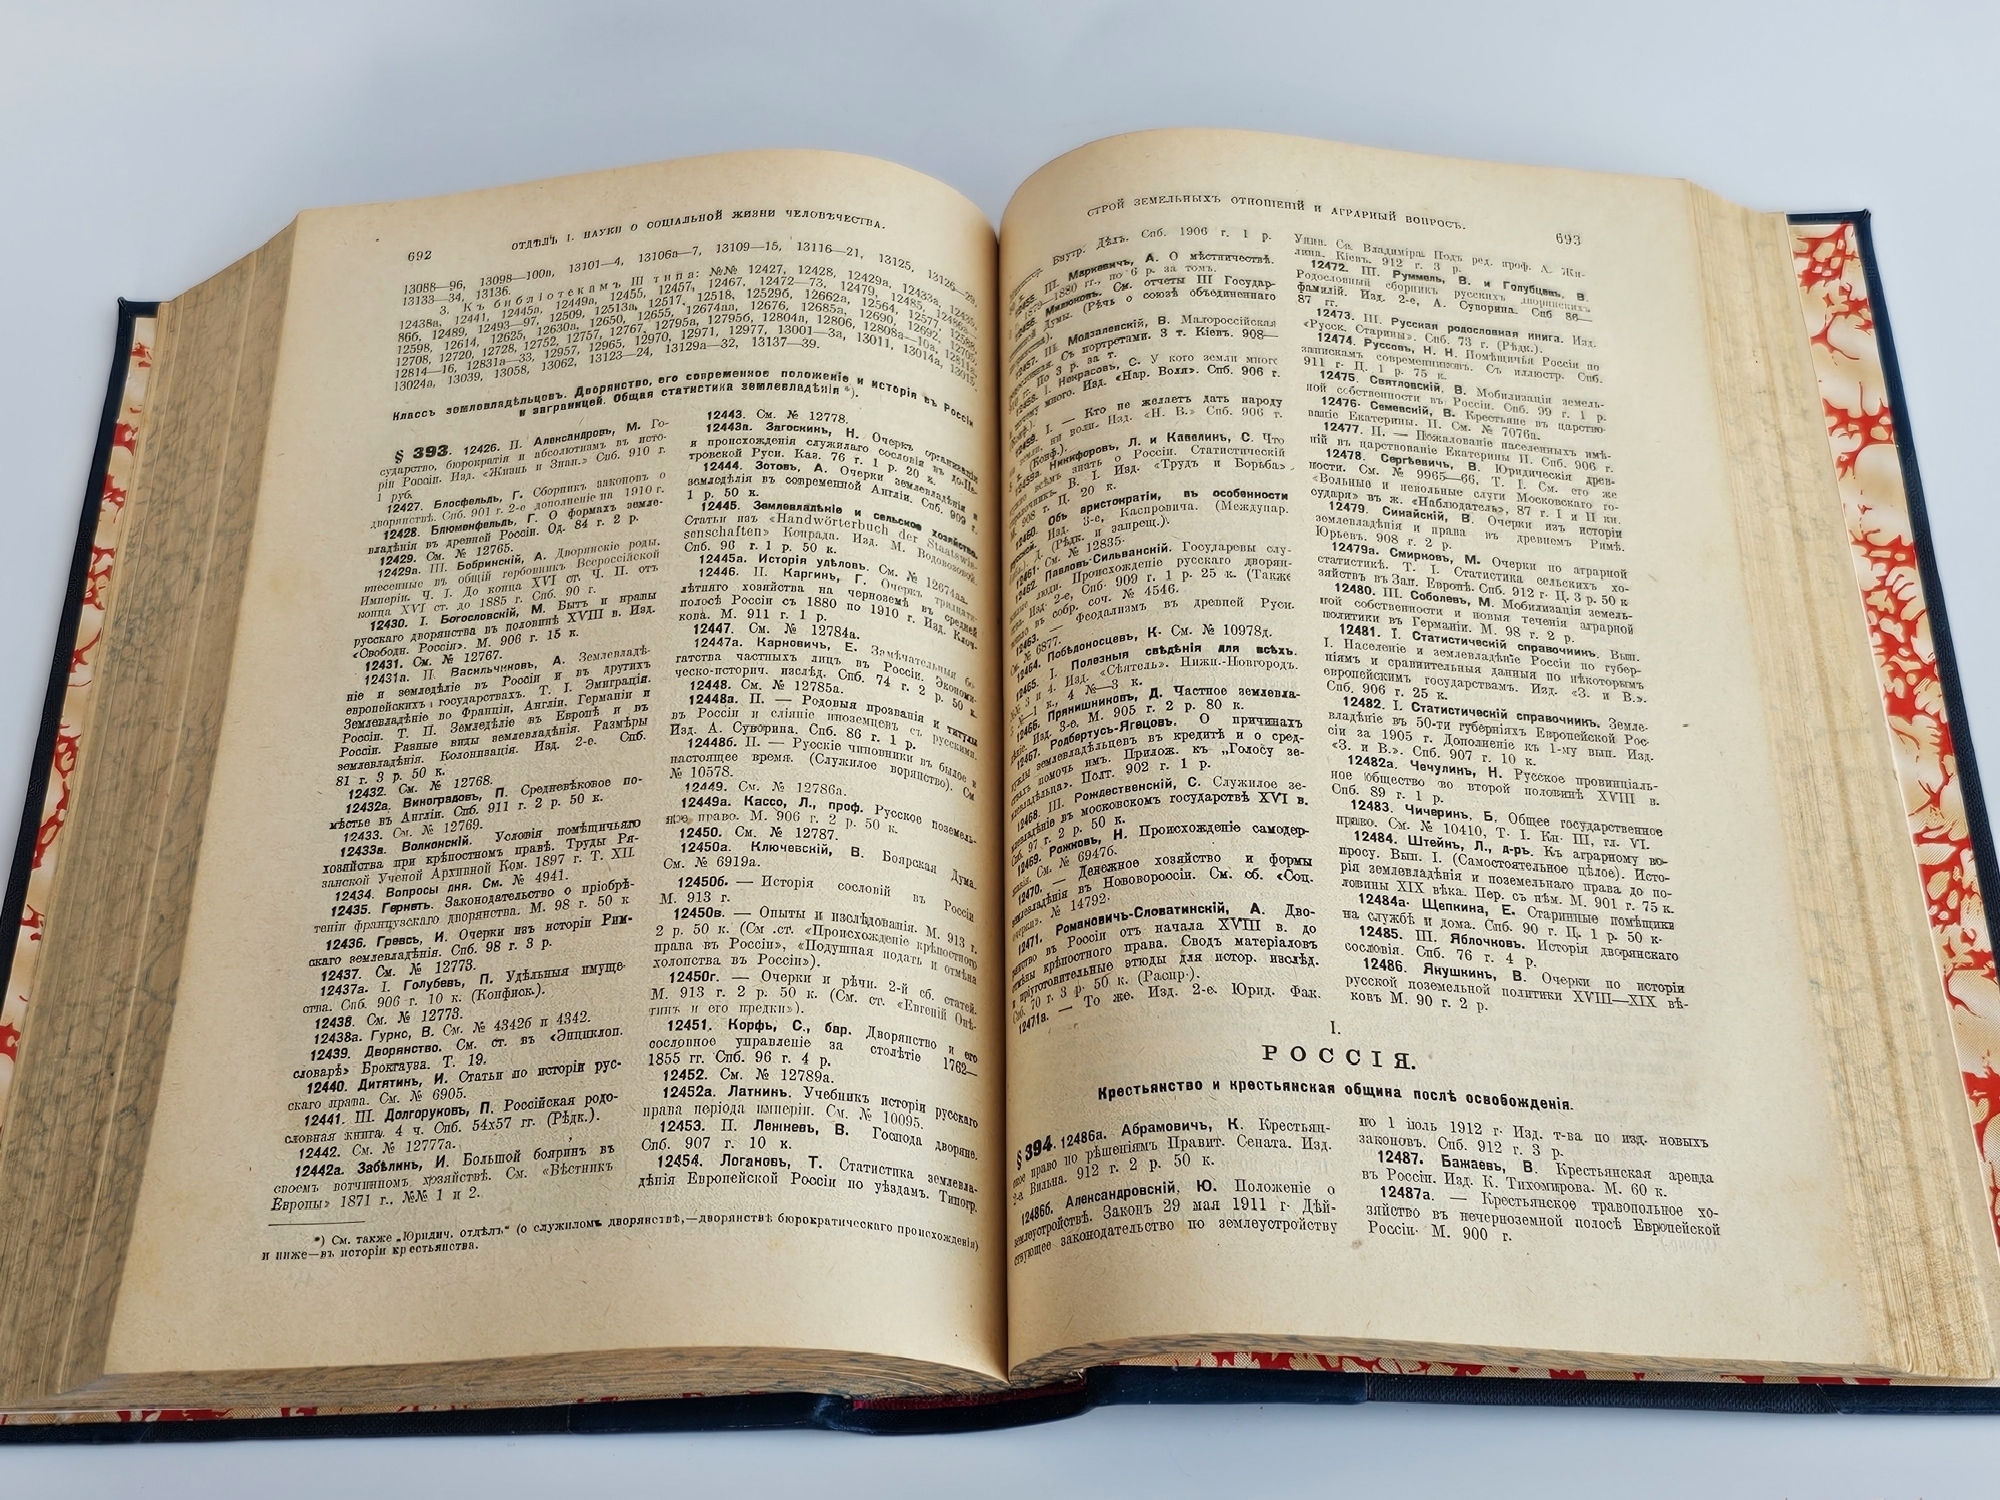 692
ОТДѢЛЪ I. НАУКИ О СОЦІАЛЬНОЙ ЖИЗНИ ЧЕЛОВѢЧЕСТВА.
13088—96, 13098—100в, 13101—4, 13106а—7, 13109—15, 13116—21, 13125, 13126—29,
13133—34, 13136.
3. Къ библіотекамъ III типа: №№ 12427, 12428, 12429а, 12433а, 12435,
Классъ землевладѣльцовъ. Дворянство, его современное положеніе и исторія въ Россіи
и заграницей. Общая статистика землевладѣнія *).
§ 393. 12426. II. Александровъ, М. Го-
сударство, бюрократія и абсолютизмъ въ исто-
ріи Россіи. Изд. «Жизнь и Знан.» Спб. 910 г.
1 руб.
12427. Блосфельдъ, Г. Сборникъ законовъ о
дворянствѣ. Спб. 901 г. 2-е дополненіе на 1910 г.
12428. Блюменфельдъ, Г. О формахъ земле-
владѣнія въ древней Россіи. Од. 84 г. 2 р.
12429. См. № 12765.
12429а. III. Бобринскій, А. Дворянскіе роды,
внесенные въ общій гербовникъ Всероссійской
Имперіи. Ч. I. До конца XVI ст. Ч. II. отъ
конца XVI ст. до 1885 г. Спб. 90 г.
12430. I. Богословскій, М. Бытъ и нравы
русскаго дворянства въ половинѣ XVIII в. Изд.
«Свободн. Россія». М. 906 г. 15 к.
12431. См. № 12767.
12431а. II. Васильчиковъ, А. Землевладѣ-
ніе и земледѣліе въ Россіи и въ другихъ
европейскихъ государствахъ. Т. I. Эмиграція.
Землевладѣніе во Франціи, Англіи, Германіи и
Россіи. Т. II. Земледѣліе въ Европѣ и въ
Россіи. Разные виды землевладѣнія. Размѣры
землевладѣнія. Колонизація. Изд. 2-е. Спб.
81 г. 3 р. 50 к.
12432. См. № 12768.
12432а. Виноградовъ, П. Средневѣковое по-
мѣстье въ Англіи. Спб. 911 г. 2 р. 50 к.
12433. См. № 12769.
12433а. Волконскій. Условія помѣщичьяго
хозяйства при крѣпостномъ правѣ. Труды Ря-
занской Ученой Архивной Ком. 1897 г. Т. XII.
12434. Вопросы дня. См. № 4941.
12435. Гернетъ. Законодательство о пріобрѣ-
теніи французскаго дворянства. М. 98 г. 50 к
12436. Гревсъ, И. Очерки изъ исторіи Рим-
скаго землевладѣнія. Спб. 98 г. 3 р.
12437. См. № 12773.
12437а. I. Голубевъ, П. Удѣльныя имуще-
ства. Спб. 906 г. 10 к. (Конфиск.).
12438. См. № 12773.
12438а. Гурко, В. См. № 4342б и 4342.
12439. Дворянство. См. ст. въ «Энциклоп.
словарѣ» Брокгауза. Т. 19.
12440. Дитятинъ, И. Статьи по исторіи рус-
скаго права. См. № 6905.
12441. III. Долгоруковъ, П. Россійская родо-
словная книга. 4 ч. Спб. 54х57 гг. (Рѣдк.).
12442. См. № 12777а.
12442а. Забѣлинъ, И. Большой бояринъ въ
своемъ вотчинномъ хозяйствѣ. См. «Вѣстникъ
Европы» 1871 г., №№ 1 и 2.
12443. См. № 12778.
12443а. Загоскинъ, Н. Очеркъ организаціи
и происхожденія служилаго сословія въ до-Пе-
тровской Руси. Каз. 76 г. 1 р. 20 к.
12444. Зотовъ, А. Очерки землевладѣнія и
земледѣлія въ современной Англіи. Спб. 909 г.
1 р. 50 к.
12445. Землевладѣніе и сельское хозяйство.
Статьи изъ «Handwörterbuch der Staatswis-
senschaften» Конрада. Изд. М. Водовозовой.
Спб. 96 г. 1 р. 50 к.
12445а. Исторія удѣловъ. См. № 12674аа.
12446. II. Каргинъ, Г. Очеркъ тридцати-
лѣтняго хозяйства на черноземѣ въ средней
полосѣ Россіи съ 1880 по 1910 г. Изд. Клоч-
кова. М. 911 г. 1 р.
12447. См. № 12784а.
12447а. Карновичъ, Е. Замѣчательныя бо-
гатства частныхъ лицъ въ Россіи. Экономи-
ческо-историч. изслѣд. Спб. 74 г. 2 р. 50 к.
12448. См. № 12785а.
12448а. II. — Родовыя прозванія и титулы
въ Россіи и сліяніе иноземцевъ съ русскими.
Изд. А. Суворина. Спб. 86 г. 1 р.
12448б. II. — Русскіе чиновники въ былое и
настоящее время. (Служилое ворянство). См
№ 10578.
12449. См. № 12786а.
12449а. Кассо, Л., проф. Русское поземель-
ное право. М. 906 г. 2 р. 50 к.
12450. См. № 12787.
12450а. Ключевскій, В. Боярская Дума.
См. № 6919а.
12450б. — Исторія сословій въ Россіи
М. 913 г.
12450в. — Опыты и изслѣдованія. М. 913 г.
2 р. 50 к. (См .ст. «Происхожденіе крѣпостного
права въ Россіи», «Подушная подать и отмѣна
холопства въ Россіи»).
12450г. — Очерки и рѣчи. 2-й сб. статей.
М. 913 г. 2 р. 50 к. (См. ст. «Евгеній Онѣ-
гинъ и его предки»).
12451. Корфъ, С., бар. Дворянство и его
сословное управленіе за столѣтіе 1762—
1855 гг. Спб. 96 г. 4 р.
12452. См. № 12789а.
12452а. Латкинъ. Учебникъ исторіи русскаго
права періода имперіи. См. № 10095.
12453. II. Лежневъ, В. Господа дворяне.
Спб. 907 г. 10 к.
12454. Логановъ, Т. Статистика землевла-
дѣнія Европейской Россіи по уѣздамъ. Типогр.
*) См. также „Юридич. отдѣлъ“ (о служиломъ дворянствѣ,—дворянствѣ бюрократическаго происхожденія)
и ниже—въ исторіи крестьянства.
СТРОЙ ЗЕМЕЛЬНЫХЪ ОТНОШЕНІЙ И АГРАРНЫЙ ВОПРОСЪ.
693
Внутр. Дѣлъ. Спб. 1906 г. 1 р.
III. Маркевичъ, А. О мѣстничествѣ.
1879—1880 гг., по 6 р. за томъ.
Милюковъ. См. отчеты III Государ-
Думы. (Рѣчь о союзѣ объединеннаго
12457. III. Модзалевскій, В. Малороссійская
Съ портретами. 3 т. Кіевъ. 908—
По 3 р. за т.
I. Некрасовъ, С. У кого земли много
много. Изд. «Нар. Воля». Спб. 906 г.
12459. I. — Кто не желаетъ дать народу
ни воли. Изд. «Н. В.» Спб. 906 г.
(Конф.).
12459а. Никифоровъ, Л. и Кавелинъ, С. Что
всѣмъ знать о Россіи. Статистическій
В. I. Изд. «Трудъ и Борьба»
908 г. Ц. 20 к.
12460. Объ аристократіи, въ особенности
Изд. 3-е, Каспровича. (Междунар.
(Рѣдк. и запрещ.).
12461. См. № 12835.
12462. Павловъ-Сильванскій. Государевы слу-
люди. Происхожденіе русскаго дворян-
Изд. 2-е, Спб. 909 г. 1 р. 25 к. (Также
въ собр. соч. № 4546.
12463. — Феодализмъ въ древней Руси.
№ 6877.
12464. Побѣдоносцевъ, К. См. № 10978д.
12465. I. Полезныя свѣдѣнія для всѣхъ.
3 и 4. Изд. «Сѣятель». Нижн.-Новгородъ.
№—1 к., 4 №—3 к.
12466. Прянишниковъ, Д. Частное землевла-
дѣніе. Изд. 3-е. М. 905 г. 2 р. 80 к.
12467. Родбертусъ-Ягецовъ. О причинахъ
нужды землевладѣльцевъ въ кредитѣ и о сред-
ствахъ помочь имъ. Прилож. къ „Голосу зе-
млевладѣльца». Полт. 902 г. 1 р.
12468. III. Рождественскій, С. Служилое зе-
млевладѣніе въ московскомъ государствѣ XVI в.
Спб. 97 г. 2 р. 50 к.
12469. Рожковъ, Н. Происхожденіе самодер-
жавія. См. № 6947б.
12470. — Денежное хозяйство и формы
землевладѣнія въ Новороссіи. См. сб. «Соц.
№ 14792.
12471. Романовичъ-Словатинскій, А. Дво-
рянство въ Россіи отъ начала XVIII в. до
отмѣны крѣпостного права. Сводъ матеріаловъ
и пріуготовительные этюды для истор. изслѣд.
Спб. 70 г. 3 р. 50 к. (Распр.).
12471а. — То же. Изд. 2-е. Юрид. Фак.
Унив. Св. Владиміра. Подъ ред. проф. А. Жи-
лина. Кіевъ. 912 г. 3 р.
12472. III. Руммель, В. и Голубцовъ, В.
Родословный сборникъ русскихъ дворянскихъ
фамилій. Изд. 2-е, А. Суворина. Спб 86—
87 гг.
12473. III. Русская родословная книга. Изд.
«Русск. Старины». Спб. 73 г. (Рѣдк.).
12474. Руссовъ, Н. Н. Помѣщичья Россія по
запискамъ современниковъ. Съ иллюстр. Спб.
911 г. Ц. 1 р. 75 к.
12475. Святловскій, В. Мобилизація земель-
ной собственности въ Россіи. Спб. 99 г. 1 р.
12476. Семевскій, В. Крестьяне въ царство-
ваніе Екатерины. II. См. № 7076а.
12477. II. — Пожалованіе населенныхъ имѣ-
ній въ царствованіе Екатерины II. Спб. 906 г.
12478. Сергѣевичъ, В. Юридическія древ-
ности. См. № 9965—66, Т. I. См. его же
«Вольные и невольные слуги Московскаго го-
сударя» въ ж. «Наблюдатель», 87 г. I и II кн.
12479. Синайскій, В. Очерки изъ исторіи
землевладѣнія и права въ древнемъ Римѣ.
Юрьевъ. 908 г. 2 р.
12479а. Смирновъ, М. Очерки по аграрной
статистикѣ. Т. I. Статистика сельскихъ хо-
зяйствъ въ Зап. Европѣ. Спб. 912 г. Ц. 3 р. 50 к
12480. III. Соболевъ, М. Мобилизація земель-
ной собственности и новыя теченія аграрной
политики въ Германіи. М. 98 г. 2 р.
12481. I. Статистическій справочникъ. Вып.
I. Населеніе и землевладѣніе Россіи по губер-
ніямъ и сравнительныя данныя по нѣкоторымъ
европейскимъ государствамъ. Изд. «З. и В.».
Спб. 906 г. 25 к.
12482. I. Статистическій справочникъ. Земле-
владѣніе въ 50-ти губерніяхъ Европейской Рос-
сіи за 1905 г. Дополненіе къ 1-му вып. Изд.
«З. и В.». Спб. 907 г. 10 к.
12482а. Чечулинъ, Н. Русское провинціаль-
ное общество во второй половинѣ XVIII в.
Спб. 89 г. 1 р.
12483. Чичеринъ, Б, Общее государственное
право. См. № 10410, Т. I. Кн. III, гл. VI.
12484. Штейнъ, Л., д-ръ. Къ аграрному во-
просу. Вып. I. (Самостоятельное цѣлое). Исто-
рія землевладѣнія и поземельнаго права до по-
ловины XIX вѣка. Пер. съ нѣм. М. 901 г. 75 к.
12484а. Щепкина, Е. Старинные помѣщики
на службѣ и дома. Спб. 90 г. Ц. 1 р. 50 к.
12485. III. Яблочковъ. Исторія дворянскаго
сословія. Спб. 76 г. 4 р.
12486. Якушкинъ, В. Очерки по исторіи
русской поземельной политики XVIII—XIX вѣ-
ковъ М. 90 г. 2 р.
I.
РОССІЯ.
Крестьянство и крестьянская община послѣ освобожденія.
§ 394. 12486а. Абрамовичъ, К. Крестьян-
ское право по рѣшеніямъ Правит. Сената. Изд.
2-е. Вильна. 912 г. 2 р. 50 к.
12486б. Александровскій, Ю. Положеніе о
землеустройствѣ. Законъ 29 мая 1911 г. Дѣй-
ствующее законодательство по землеустройству
по 1 іюль 1912 г. Изд. т-ва по изд. новыхъ
законовъ. Спб. 912 г. 3 р.
12487. Бажаевъ, В. Крестьянская аренда
въ Россіи. Изд. К. Тихомирова. М. 60 к.
12487а. — Крестьянское травопольное хо-
зяйство въ нечерноземной полосѣ Европейской
Россіи. М. 900 г.